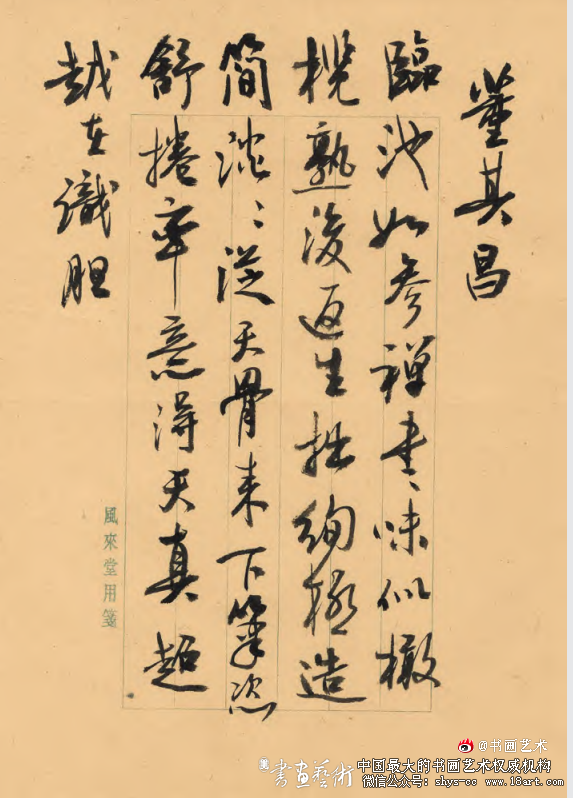 董其昌
臨池如參禪書味似橄
榄熟後返生拙絢極造
簡淡々從天骨来下筆恣
舒捲率意得天真超
越在識胆
風來堂用箋
@书画艺术
書畫藝術
中国最大的书画艺术权威机构
微信公众号：shys-cc www.18art.com